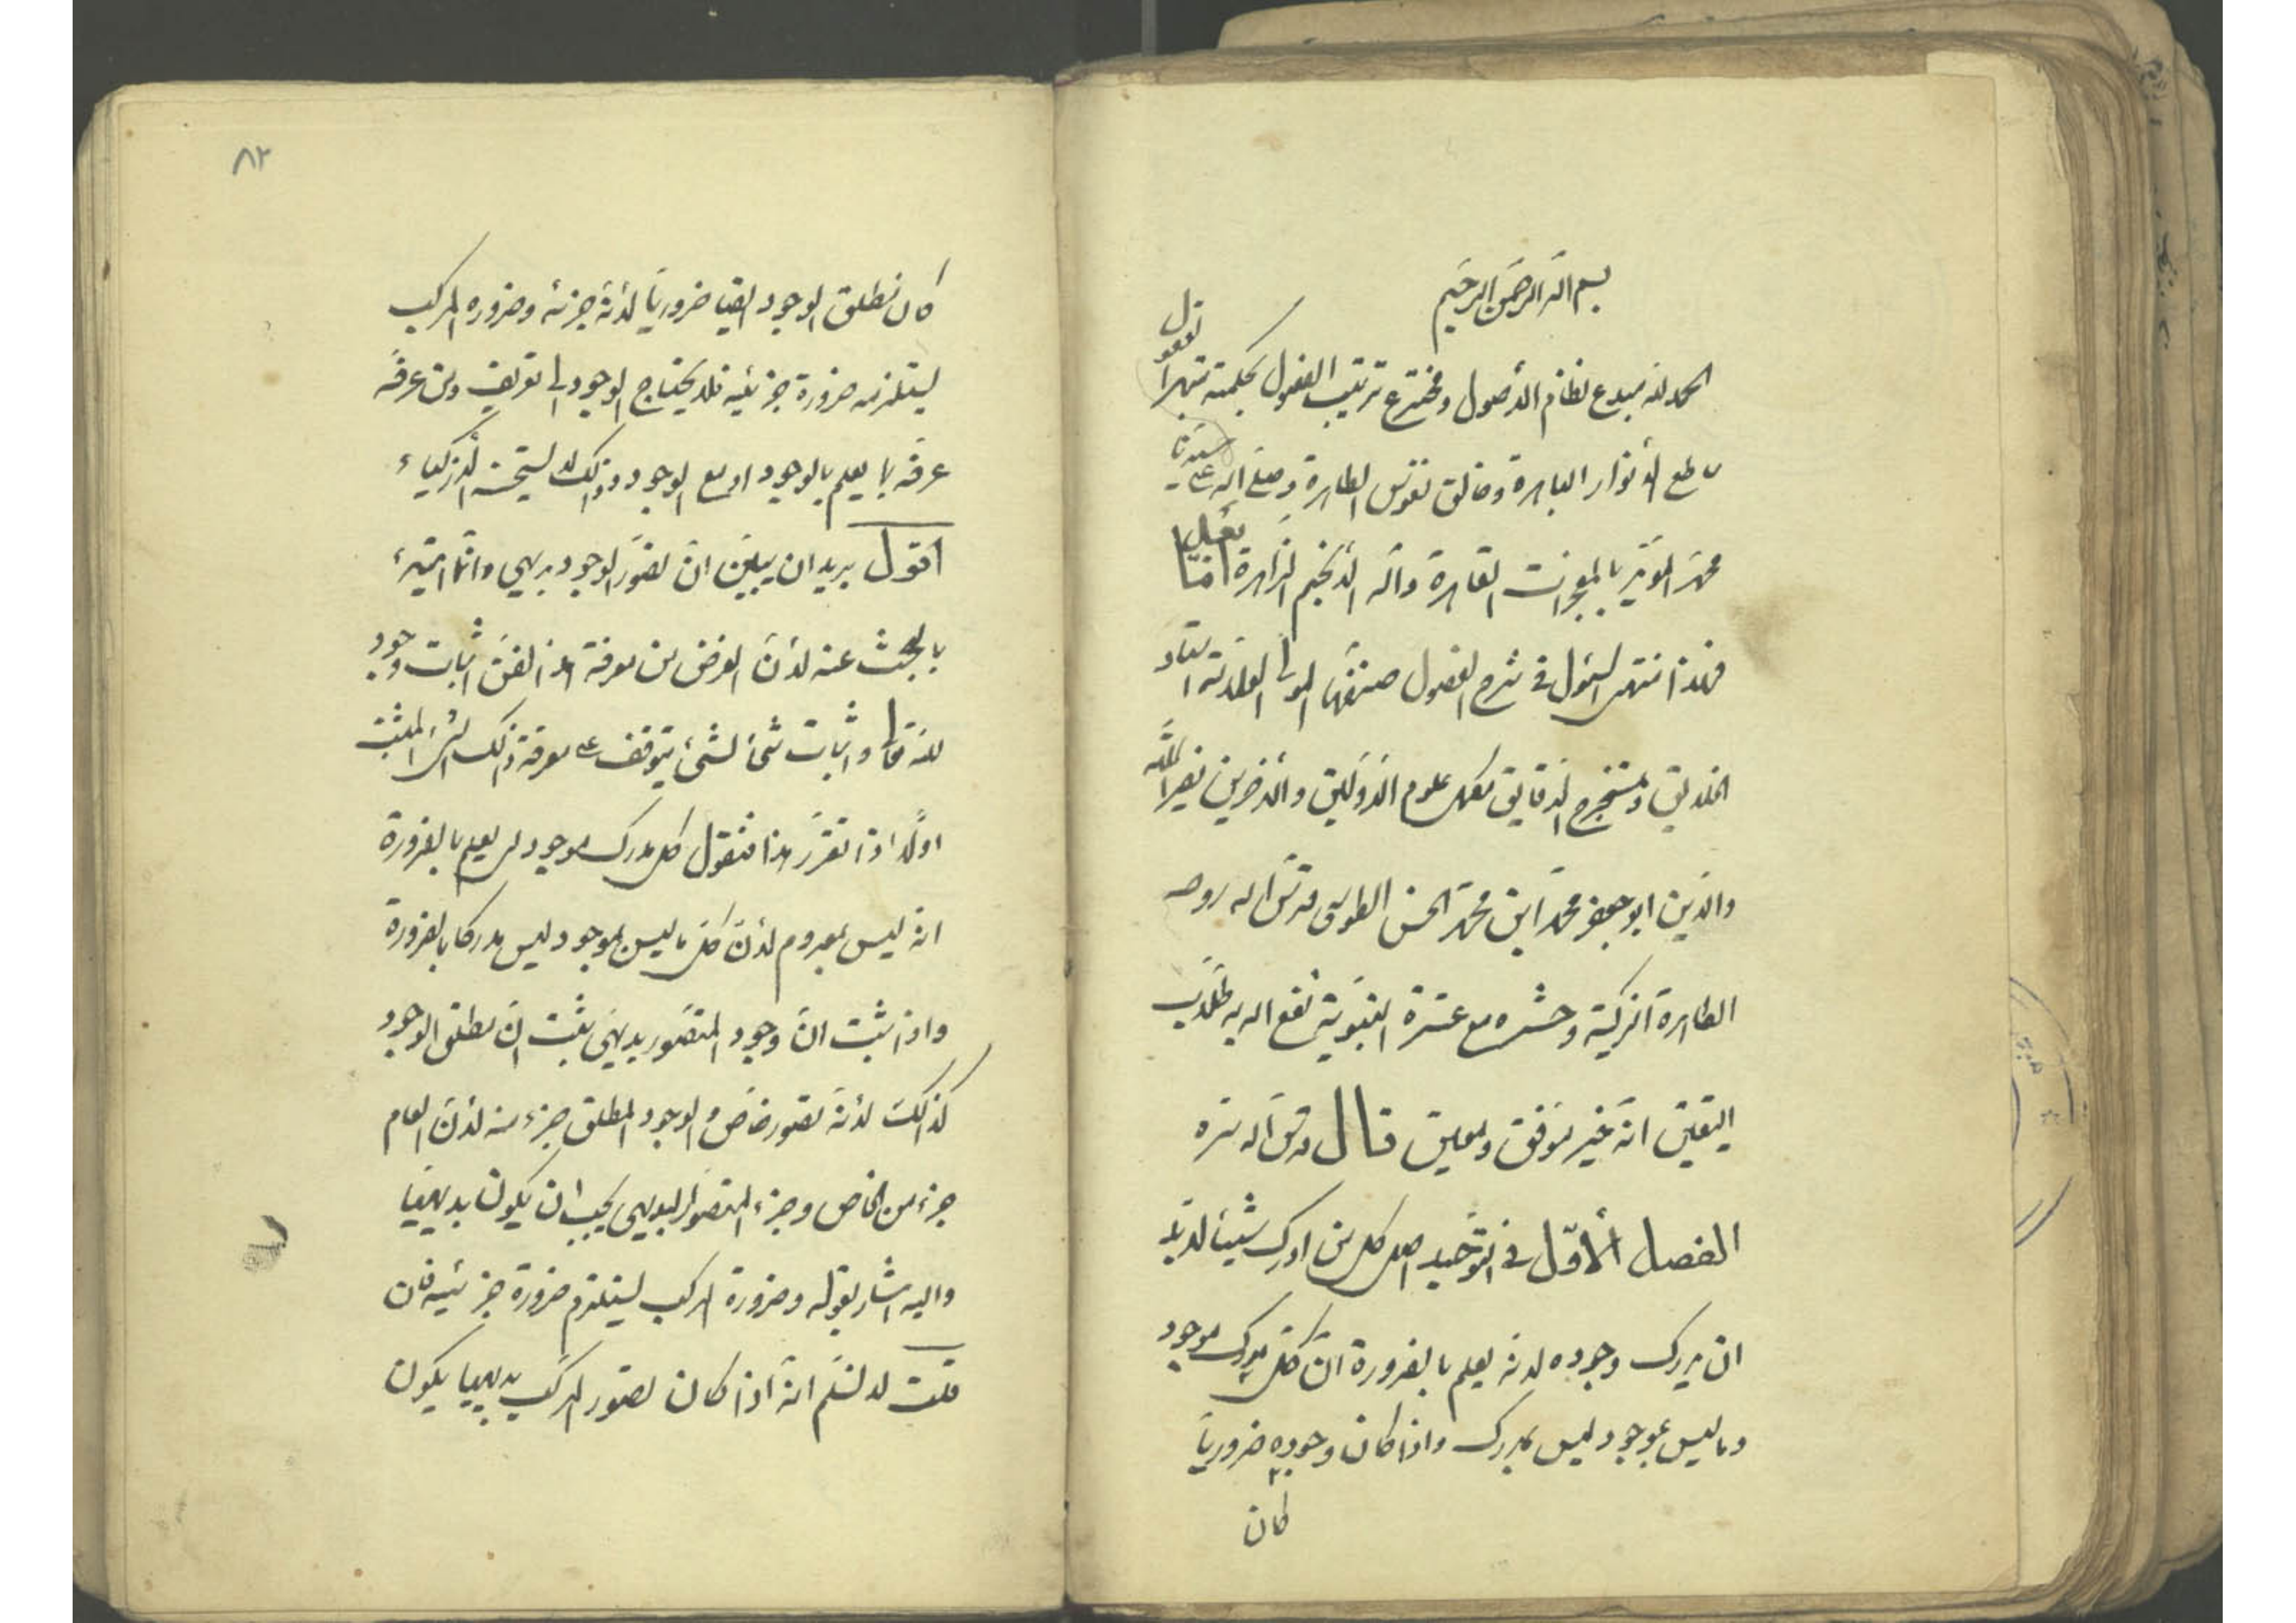 بسم الله الرحمن الرحيم
الحمد لله مبدع نظام الأصول ومخترع ترتيب الفصول بحكمته تبهرا
العقول
ساطع الأنوار الباهرة وخالق نفوس الطاهرة وصلى الله على
سيدنا
محمد المؤيد بالمعجزات القاهرة وآله الأنجم الزاهرة اما
بعد
فهذا منتهى السئول في شرح الفصول صنفها المولى العلامة استاد
الخلايق ومستخرج الدقايق مكمل علوم الاولين والاخرين نصير الملة
والدين ابو جعفر محمد ابن محمد الحسن الطوسي قدس الله روحه
الطاهرة الزكية وحشره مع عترة النبوية نفع الله به طلاب
اليقين انه خير موفق ومعين قال قدس الله سره
الفصل الأول في التوحيد اصل كل من ادرك شيئا لابد
ان يدرك وجوده لانه يعلم بالضرورة ان كل مدرك موجود
وما ليس بموجود ليس بمدرك واذا كان وجوده ضروريا
كان
٨٢
كان مطلق الوجود ايضا ضروريا لأنه جزئه وضرورة المركب
يستلزمه ضرورة جزئيه فلا يحتاج الوجود الى تعريف ومن عرفه
عرفه بما يعلم بالوجود او مع الوجود وذلك لا يستحسنه الأزكياء
اقول يريد ان يبين ان تصور الوجود بديهي وانما ابتدئ
بالبحث عنه لأن الغرض من معرفة هذا الفن اثبات وجود
لله تعالى واثبات شئ لشئ يتوقف على معرفة ذلك الشئ المثبت
اولا اذا تقرر هذا فنقول كل مدرك موجود لمن يعلم بالضرورة
انه ليس بمعدوم لأن كل ما ليس بموجود ليس مدركا بالضرورة
واذا ثبت ان وجود المتصور بديهي يثبت ان مطلق الوجود
كذلك لأنه تصور خاص والوجود المطلق جزء منه لأن العام
جزء من الخاص وجزء المتصور البديهي يجب ان يكون بديهيا
واليه اشار بقوله وضرورة المركب يستلزم ضرورة جزئيه فان
قلت لا نسلم انه اذا كان تصور المركب بديهيا يكون